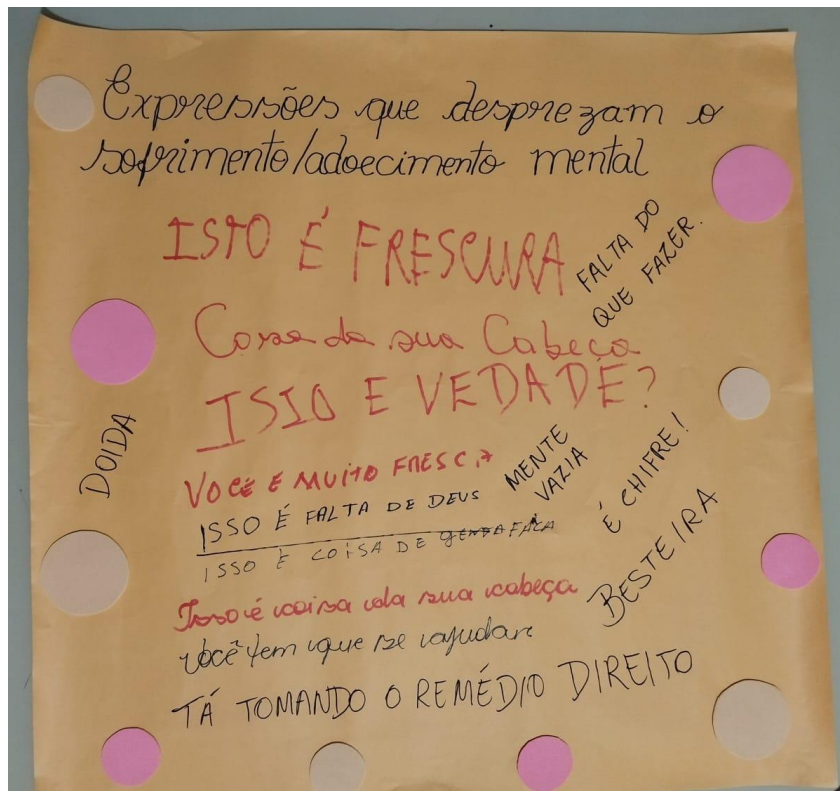 Expressões que desprezam o
sofrimento/adoecimento mental
ISTO É FRESCURA
FALTA DO
QUE FAZER.
Coisa da sua Cabeça
ISIO E VEDADE?
DOIDA
VOCÊ E MUITO FRESC
MENTE
VAZIA
ISSO É FALTA DE DEUS
É CHIFRE!
ISSO É COISA DE
BESTEIRA
Isso é coisa da sua cabeça
você tem que se ajudar.
TÁ TOMANDO O REMÉDIO DIREITO